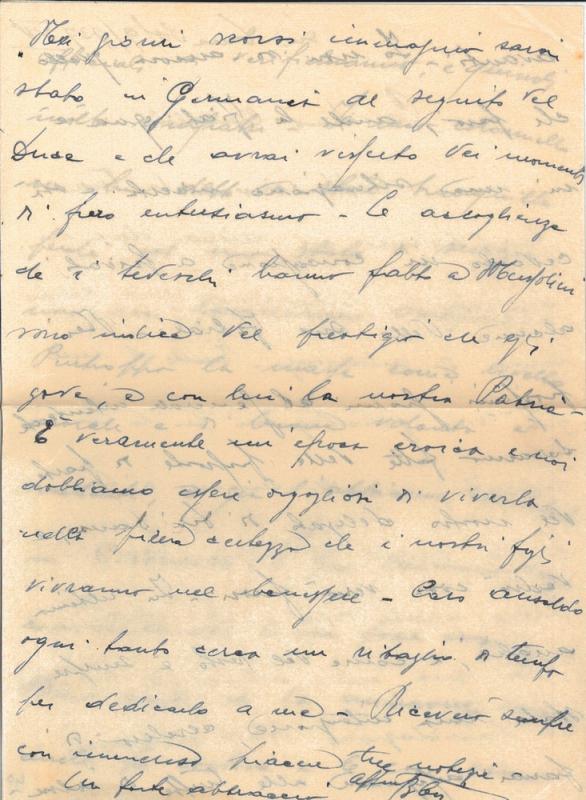 Nei giorni scorsi immagino sarai
stato in Germania al seguito del
Duce e che avrai vissuto dei momenti
di fiero entusiasmo - Le accoglienze
che i tedeschi hanno fatto a Mussolini
sono indice del prestigio che egli
gode, e con lui la nostra Patria -
È veramente un'epoca eroica e noi
dobbiamo essere orgogliosi di viverla
nella piena certezza che i nostri figli
vivranno nel benessere - Caro Ansaldo
ogni tanto cerca un ritaglio di tempo
per dedicarlo a me - Riceverò sempre
con immenso piacere tue notizie -
Un forte abbraccio